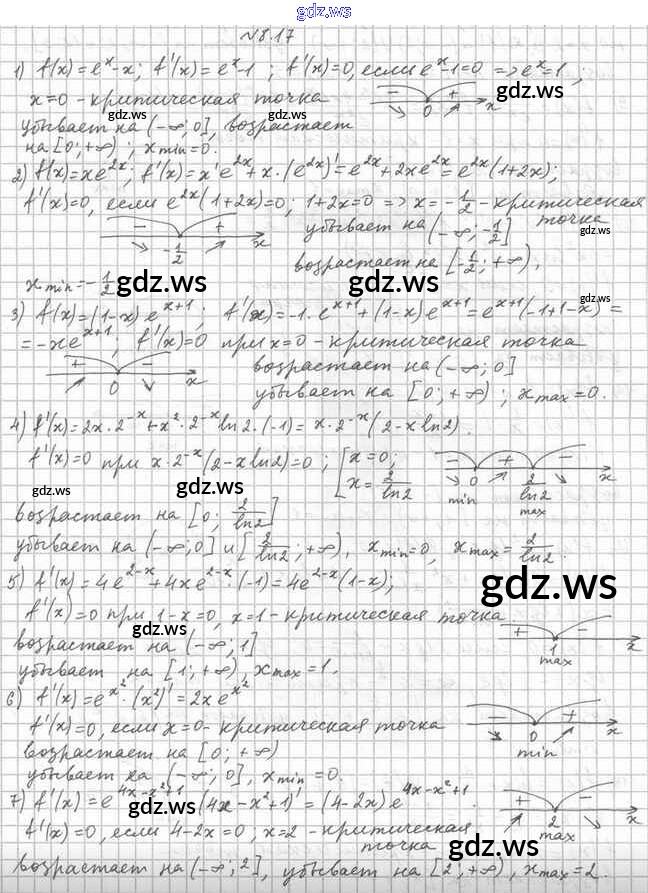 gdz.ws
№8.17
1) f(x)=e^x-x; f'(x)=e^x-1; f'(x)=0, если e^x-1=0 => e^x=1,
x=0 - критическая точка
- + 0 x
gdz.ws
gdz.ws
gdz.ws
убывает на (-∞;0], возрастает
на [0;+∞); x min=0.
gdz.ws
gdz.ws
2) f(x)=xe^{2x}; f'(x)=x'e^{2x}+x·(e^{2x})'=e^{2x}+2xe^{2x}=e^{2x}(1+2x);
f'(x)=0, если e^{2x}(1+2x)=0; 1+2x=0 => x=-1/2 - критическая
точка
- + -1/2 x
убывает на (-∞;-1/2]
gdz.ws
возрастает на [-1/2;+∞),
x min=-1/2
gdz.ws
gdz.ws
gdz.ws
3) f(x)=(1-x)e^{x+1}; f'(x)=-1·e^{x+1}+(1-x)e^{x+1}=e^{x+1}(-1+1-x)=
=-xe^{x+1}; f'(x)=0 при x=0 - критическая точка
+ - 0 x
возрастает на (-∞;0]
убывает на [0;+∞); x max=0.
4) f'(x)=2x·2^{-x}+x²·2^{-x}ln2·(-1)=x·2^{-x}(2-xln2).
f'(x)=0 при x·2^{-x}(2-xln2)=0; [x=0; x=2/ln2
- + - 0 min 2/ln2 max x
gdz.ws
gdz.ws
gdz.ws
возрастает на [0; 2/ln2]
убывает на (-∞;0] и [2/ln2;+∞), x min=0, x max=2/ln2.
5) f'(x)=4e^{2-x}+4xe^{2-x}·(-1)=4e^{2-x}(1-x);
gdz.ws
f'(x)=0 при 1-x=0, x=1 - критическая точка.
gdz.ws
+ - 1 max x
возрастает на (-∞;1]
убывает на [1;+∞), x max=1.
6) f'(x)=e^{x²}·(x²)'=2xe^{x²}
f'(x)=0, если x=0 - критическая точка
- + 0 min x
возрастает на [0;+∞)
убывает на (-∞;0], x min=0.
7) f'(x)=e^{4x-x²+1}·(4x-x²+1)'=(4-2x)e^{4x-x²+1}.
gdz.ws
gdz.ws
+ - 2 max x
f'(x)=0, если 4-2x=0; x=2 - критическая
точка
возрастает на (-∞;2], убывает на [2;+∞), x max=2.